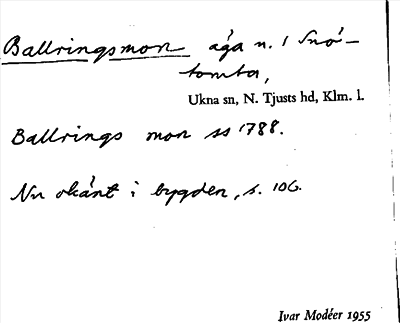 Ballringsmon äga n. / Snö-
tomta,
Ukna sn, N. Tjusts hd, Klm. l.
Ballrings mon ss 1788.
Nu okänt i bygden, s. 106.
Ivar Modéer 1955